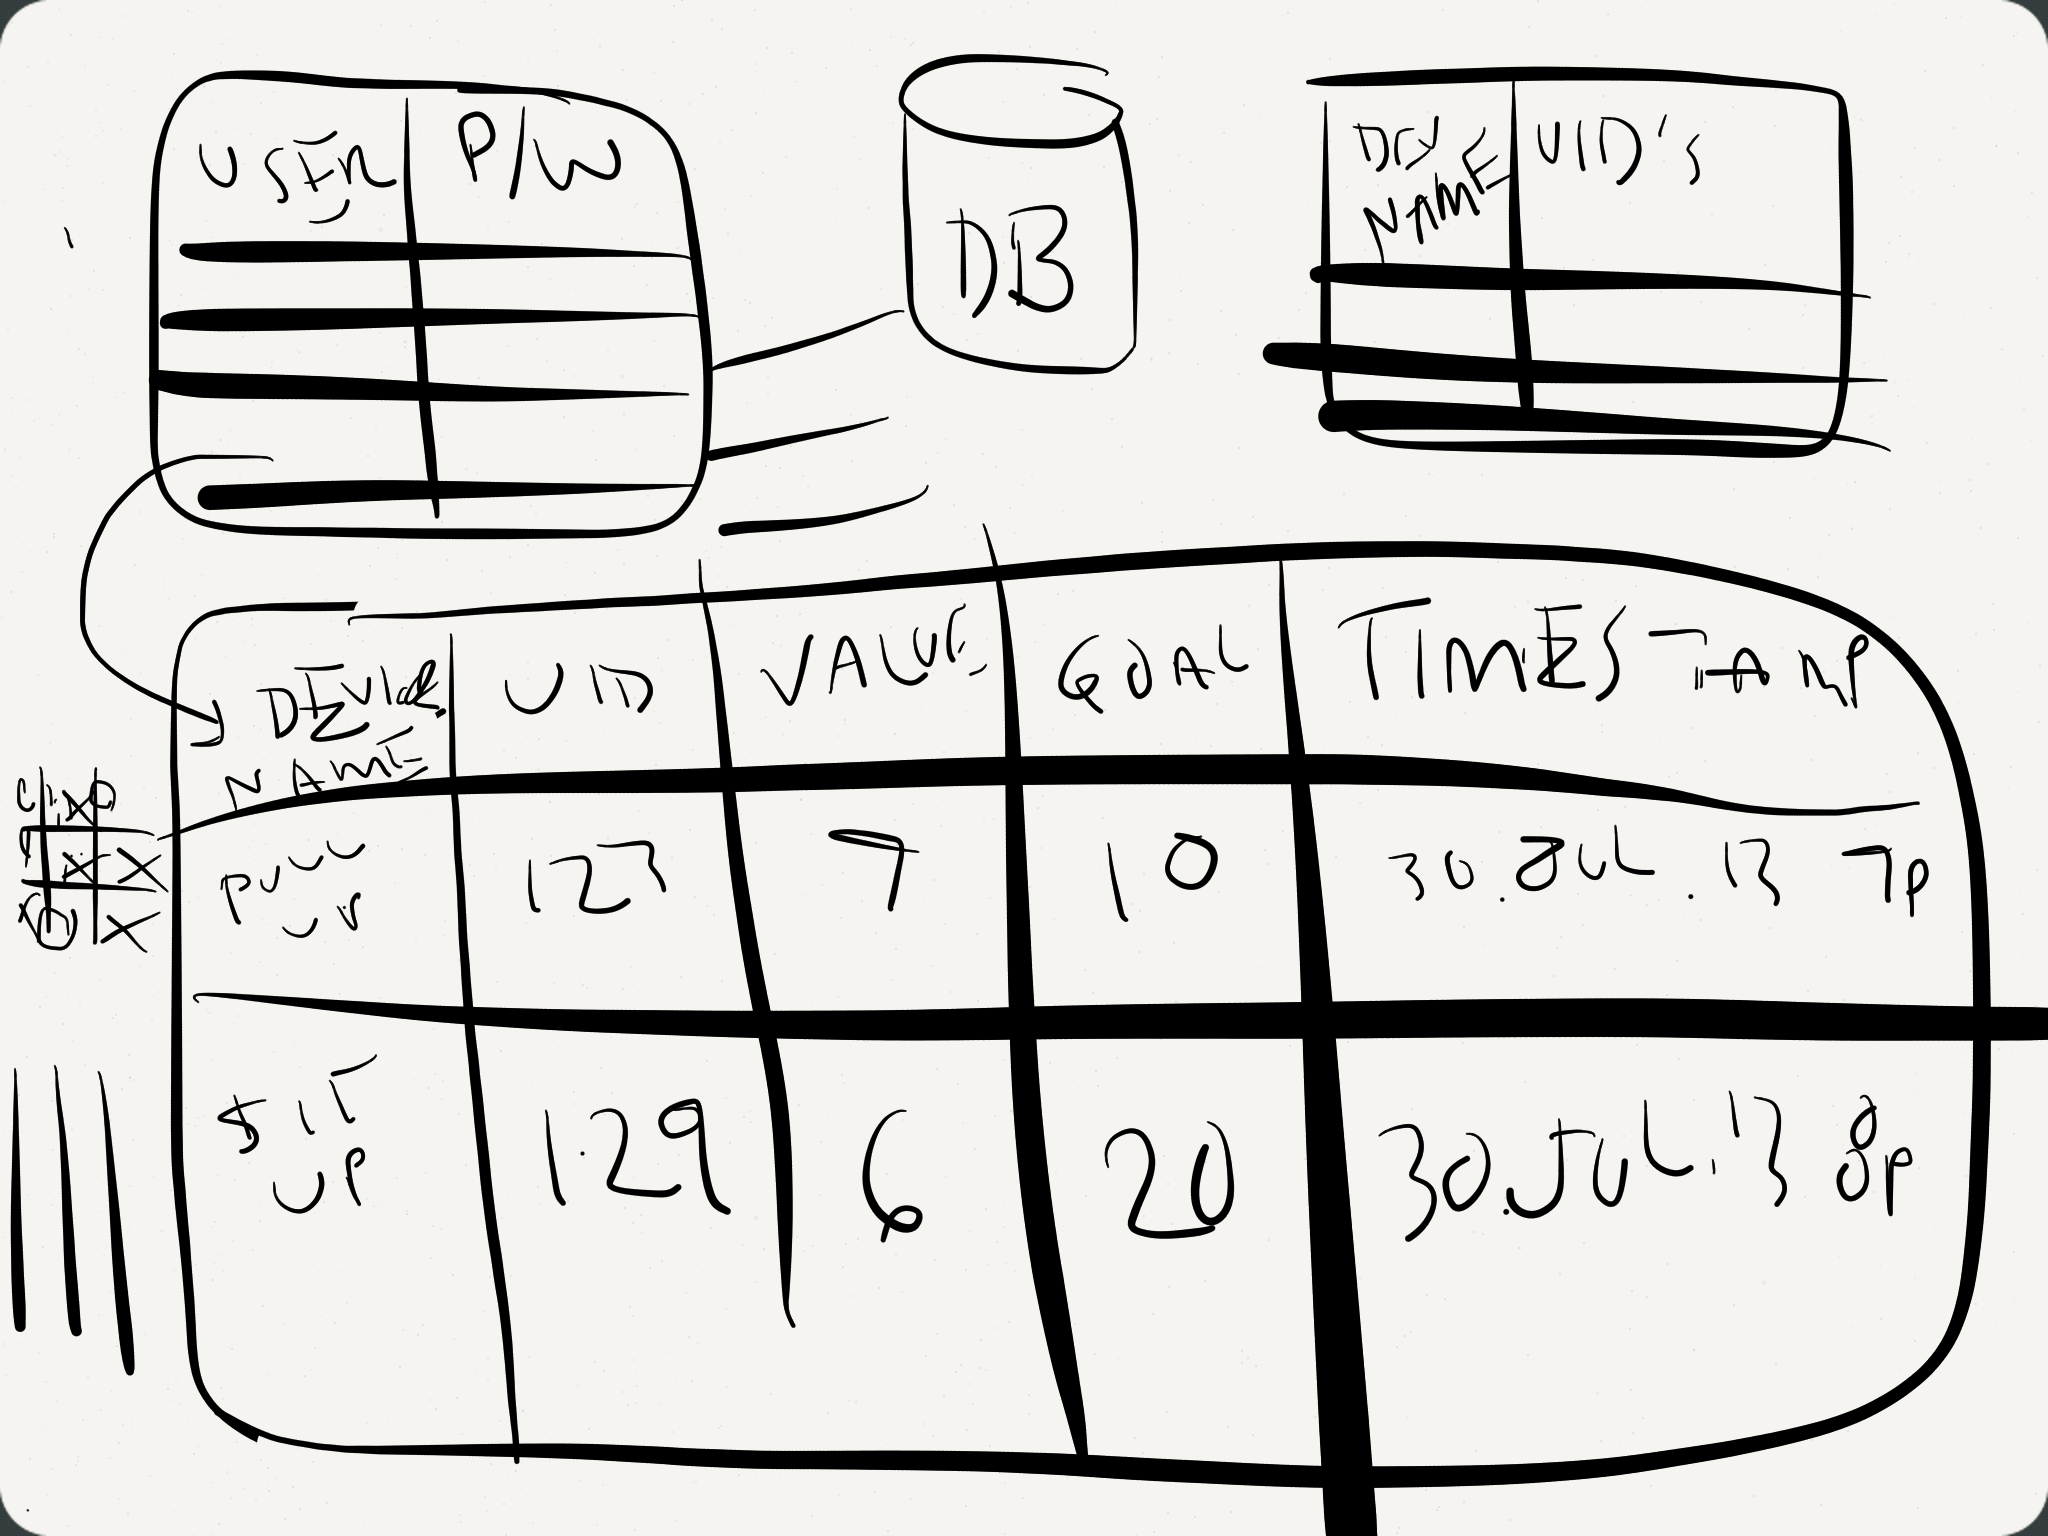 USER P/W
DB
DEV NAME UID'S
DEVICE NAME UID VALUE GOAL TIMESTAMP
PULL UP 123 7 10 30.JUL.13 7p
SIT UP 129 6 20 30.JUL.13 8p